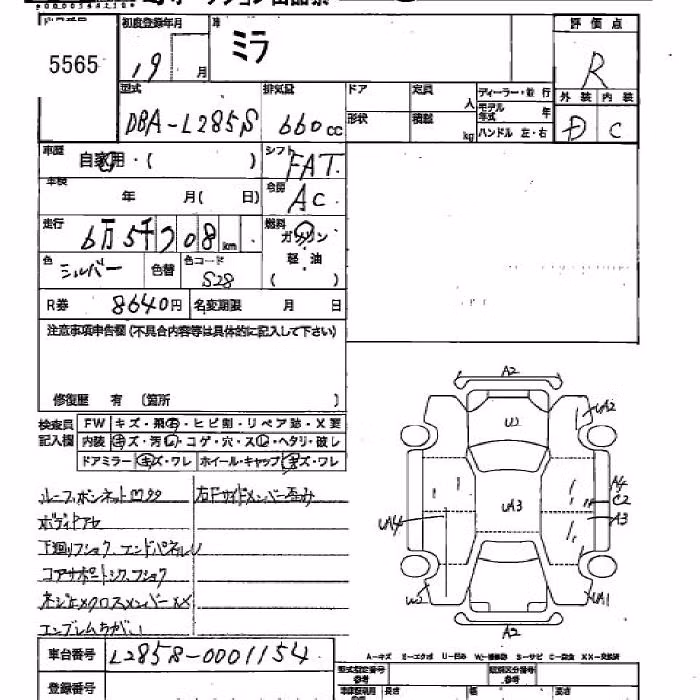 初度登録年月
車
評価点
5565
19
月
ミラ
R
型式
排気量
ドア
定員
人
ディーラー・並行
外装 内装
DBA-L285S
660cc
形状
積載
kg
モデル年式
年
ハンドル 左・右
D
C
車歴
自家用・( )
シフト
FAT
車検
年 月( 日)
冷房
AC
走行
6万5千708km
燃料
ガソリン
軽油
( )
色
シルバー
色替
色コード
S28
R券
8640円
名変期限 月 日
注意事項申告欄(不具合内容等は具体的に記入して下さい)
修復歴 有 〔箇所 〕
検査員記入欄
FW キズ・飛石・ヒビ割・リペア跡・X要
内装 キズ・汚レ・コゲ・穴・スレ・ヘタリ・破レ
ドアミラー キズ・ワレ ホイール・キャップ キズ・ワレ
ルーフボンネット凹タタ
右Fサイドメンバー歪み
ボディドアセ
下廻りフショク エンドパネルU
コアサポートシフ、フショク
ネジ止メクロスメンバーXX
エンブレムちがい
A2
U2
UA2
A4
C2
UA3
A3
UA4
W2
UA1
A2
A-キズ E-エクボ U-凹み W-補修跡 S-サビ C-腐食 XX-交換済
車台番号
L285S-0001154
型式指定番号
参考
類別区分番号
参考
登録番号
長さ
幅
高さ